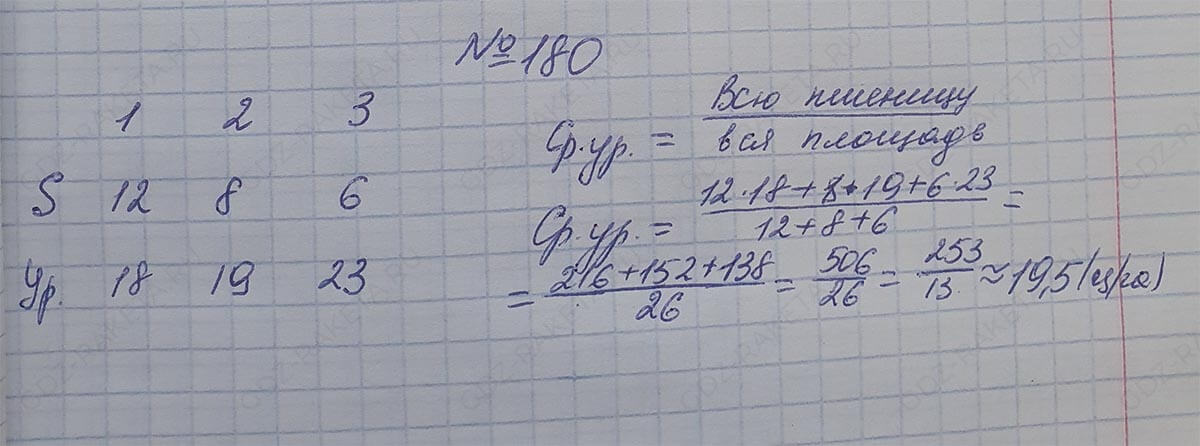 №180
1 2 3
S 12 8 6
Ур. 18 19 23
Ср.ур. = Всю пшеницу / вся площадь
Ср.ур. = 12·18+8·19+6·23 / 12+8+6 =
= 216+152+138 / 26 = 506 / 26 = 253 / 13 ≈ 19,5 (ц/га)
GDZ-RAKETA.RU